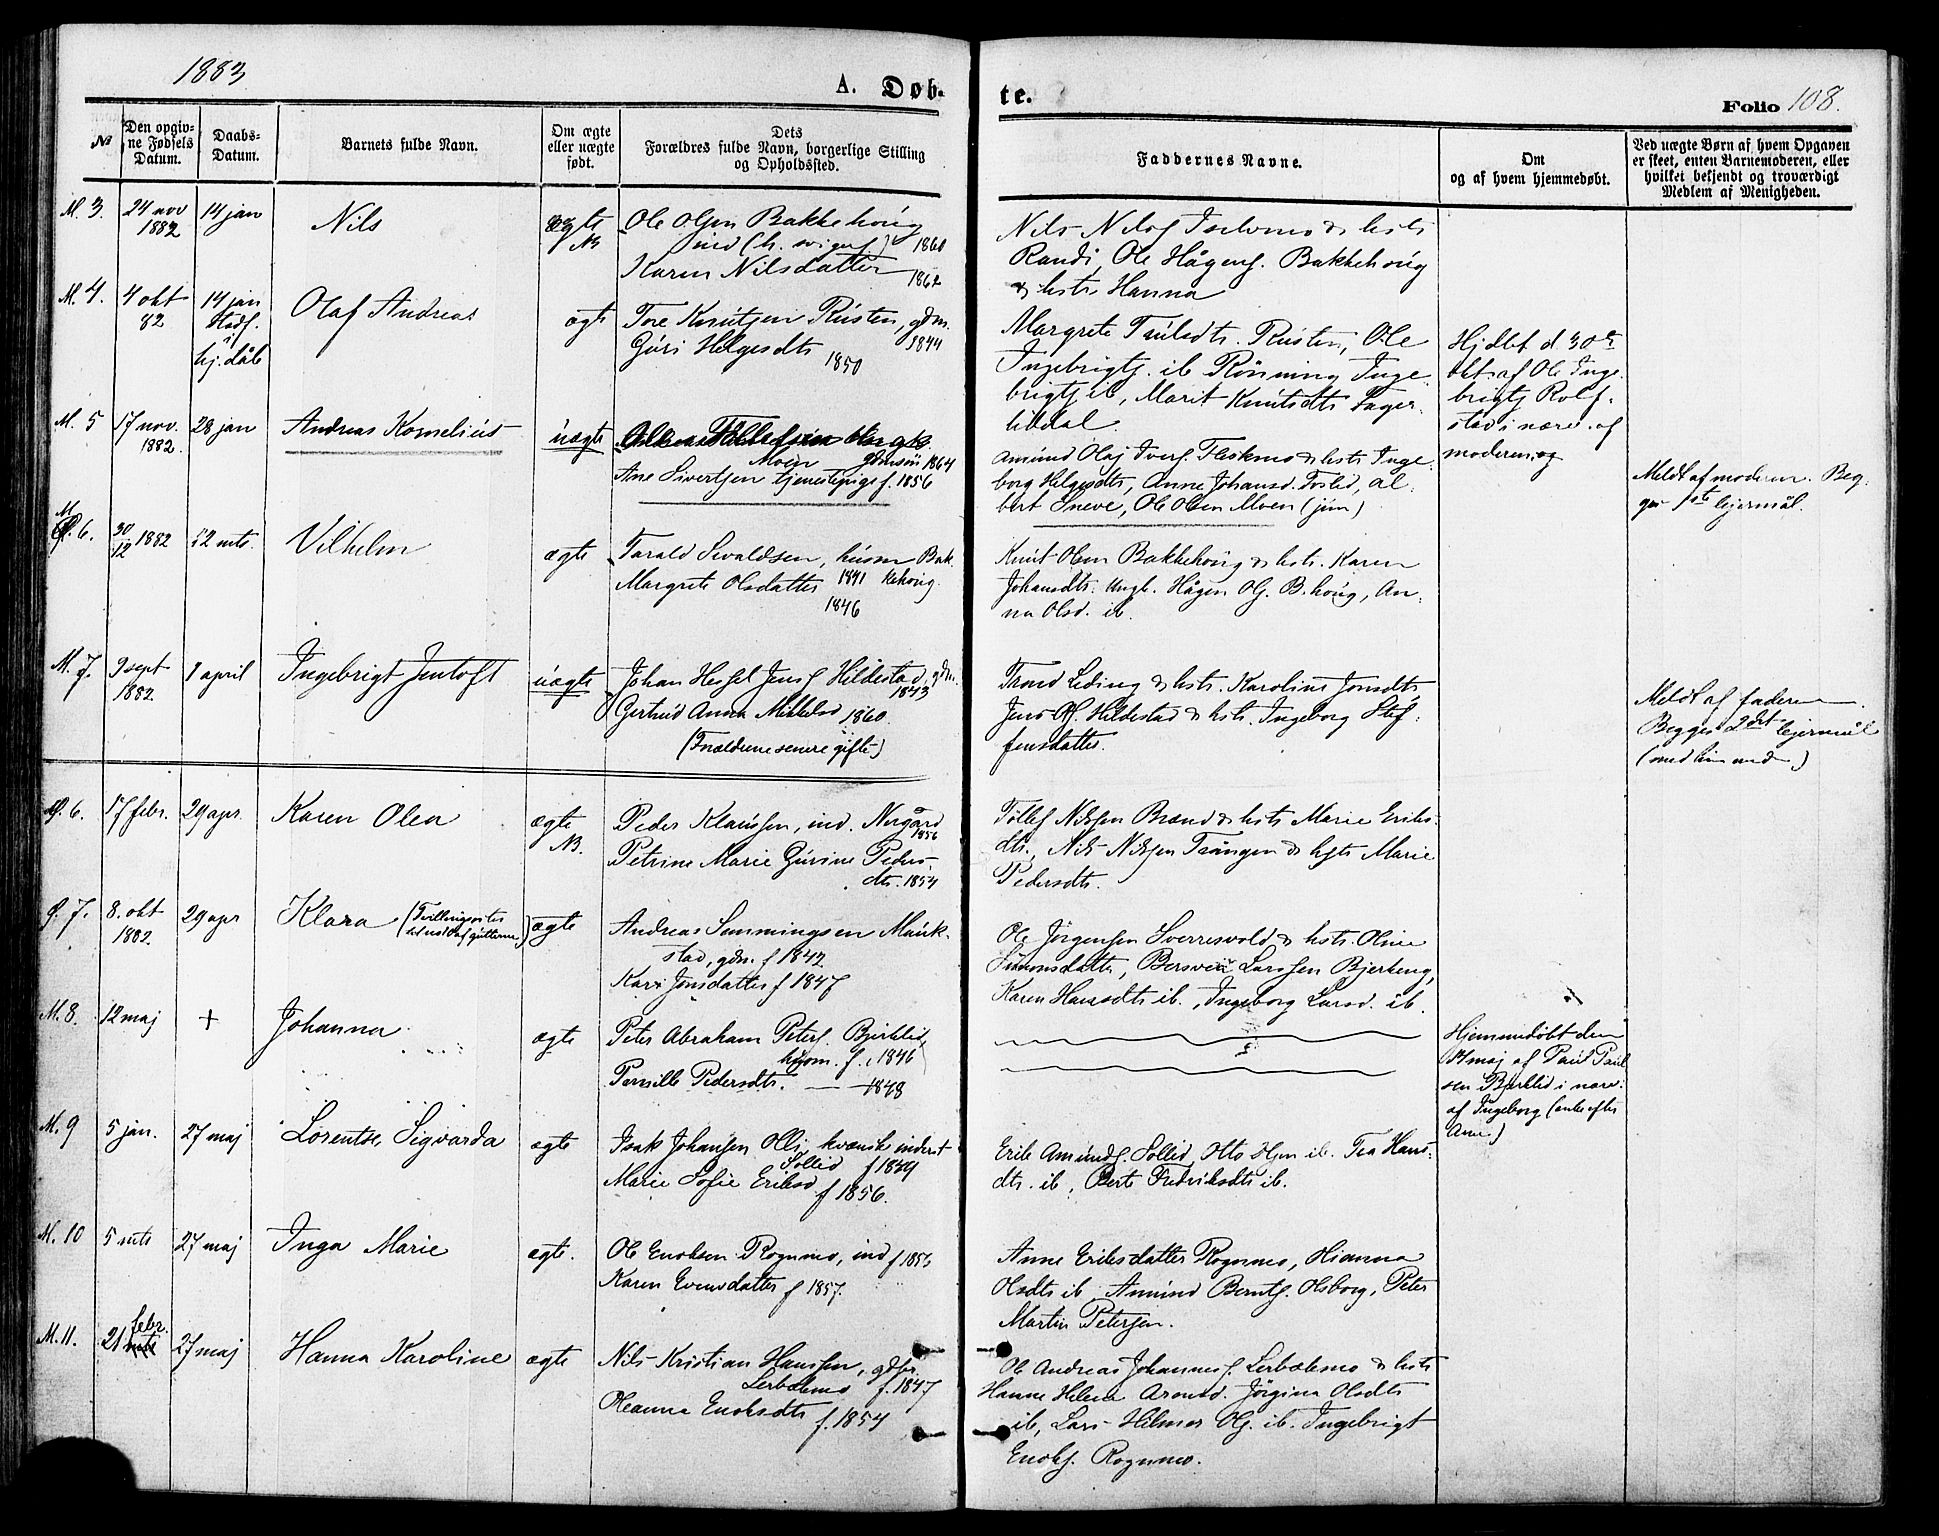 1883
A. Døb-
te.
Folio 108.
№
Den opgiv-
ne Fødsels
Datum.
Daabs-
Datum.
Barnets fulde Navn.
Om ægte
eller uægte
født.
Dets
Forældres fulde Navn, borgerlige Stilling
og Opholdssted.
Faddernes Navne.
Om
og af hvem hjemmedøbt.
Ved uægte Børn af hvem Opgaven
er skeet, enten Barnemoderen, eller
hvilket bekjendt og troværdigt
Medlem af Menigheden.
M. 3.
24 nov
1882
14 jan
Nils
ægte
NB
Ole Olsen Bakkehoug
ind (h. svigerf.) 1860
Karen Nilsdatter
1862
Nils Nilsf & hstr
Randi, Ole Hågens. Bakkehoug
& hstr Hanna
M. 4.
4 okt
82
14 jan
stadf.
hj. dåb
Olaf Andreas
ægte
Tore Knutsen Rusten, gdm.
1844
Guri Helgesdtr
1850
Margrete Paulsdtr. Rusten, Ole
Ingebrigts. ib Rønning Inge-
brigts ib, Marit Knutsdtr Fager-
lidal.
Hjdbt d 30te
okt. af Ole Inge-
brigts Rolf-
stad i nærv. af
moderen og
M. 5
17 nov.
1882.
28 jan
Andreas Kornelius
uægte
Moen gdmsøn 1864
Ane Sivertsen tjenestepige f. 1856
Amund Olaj Ivers. Fleskmo & hstr Inge-
borg Helgesdtr, Anne Johansd. Foslid, Al-
bert Sneve, Ole Olsen Moen (jun)
Meldt af moderen. Beg-
ges 1ste leiermål.
M. 6.
30/12 1882
12 mts.
Vilhelm
ægte
Tarald Sivaldsen, husm Bak-
1841 kehoug.
Margrete Olsdatter
1846
Knut Olsen Bakkehoug & hstr. Karen
Johansdtr. Ungk. Hågen Ols. B.houg, An-
na Olsd. ib.
M. 7.
9 sept
1882.
1 april
Ingebrigt Jentoft
uægte
Johan Hessel Jens. Hildestad, gdm.
1843
Gertrud Anna Mikkelsd 1860.
(Forældrene senere gifte)
Trond Leding & hstr. Karoline Jonsdtr,
Jens Hildestad & hstr. Ingeborg Stef-
fensdatter.
Meldt af faderen.
Begges 2det leiermål
(med hinanden)
P. 6.
17 febr.
29 apr.
Karen Olea
ægte
NB.
Peder Klausen, ind. Nergård
1856
Petrine Marie Gurine Peders-
dtr. 1854
Tollef Nilssen Brænd & hstr Marie Eriks-
dtr., Nils Nilssen Trangen & hstr Marie
Pedersdtr.
P. 7.
8. okt
1882.
29 apr
Klara
ægte
Andreas Simmingsen Mauk-
stad, gdm. f 1842
Kari Jonsdatter f 1847
Ole Jörgensen Sverresvold & hstr. Oline
Simonsdatter, Bersven Larssen Bjerkeng,
Karen Hansdtr ib. Ingeborg Larsd. ib.
M. 8.
12 maj
+
Johanna
ægte
Peter Abraham Peters. Bjerklid
husm. f. 1846
Pernille Pedersdtr. — 1848
Hjemmedøbt den
14 maj af Paul Paul-
sen Bjerklid i nærv:
af Ingeborg
M. 9
5 jan.
27 maj
Lorentse Sigvarda
ægte
Isak Johansen Olli, kvænsk inderst
Sollid f 1849
Marie Sofie Eriksd f 1856.
Erik Amunds. Sollid, Otto Olsen ib. Tea Hans-
dtr. ib, Berte Fredriksdtr ib.
M. 10
5 mts
27 maj
Inga Marie
ægte.
Ole Enoksen Rognmo, ind f 1855
Karen Evensdatter f 1857.
Anne Eriksdatter Rognmo, Hianna
Olsdtr ib. Amund Bernts. Olsborg, Peter
Martin Petersen.
M. 11.
21 febr.
27 maj
Hanna Karoline
ægte
Nils Kristian Hanssen, gdbr.
Lerbakmo f. 1847
Oleanna Enoksdtr f. 1854
Ole Andreas Johannes. Lerbakmo & hstr
Hanne Helena Aronsd. Jörgina Olsdtr
ib, Lars Hilmar Ols. ib. Ingebrigt
Enoks. Rognmo.